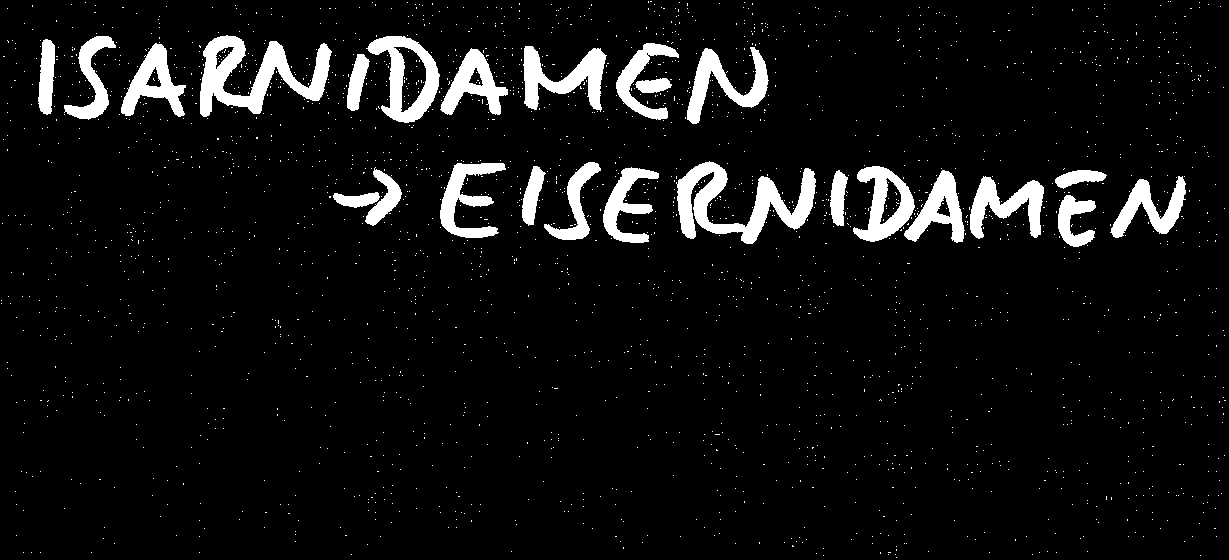 ISARNIDAMEN
→ EISERNIDAMEN